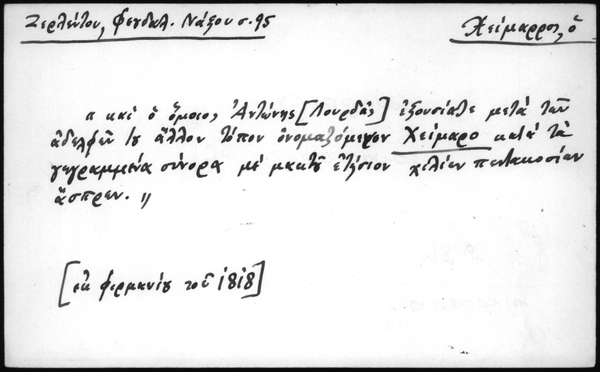 Ζερλέντου, Φεουδαλ. Νάξου σ. 95
Χείμαρρος, ὁ
" καὶ ὁ ὅμοιος Ἀντώνης [Λουρδᾶς] ἐξουσίαζε μετὰ τῶν
ἀδελφῶν του ἄλλον τόπον ὀνομαζόμενον Χείμαρο κατὰ τὰ
γεγραμμένα σύνορα μὲ μακτοῦ ἐτήσιον χιλίων πεντακοσίων
ἄσπρων. "
[ἐκ φιρμανίου τοῦ 1818]